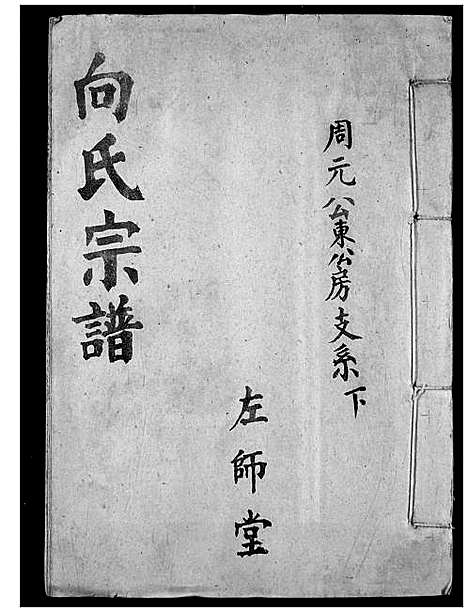 周元公東公房支系下
左師堂
向氏宗譜